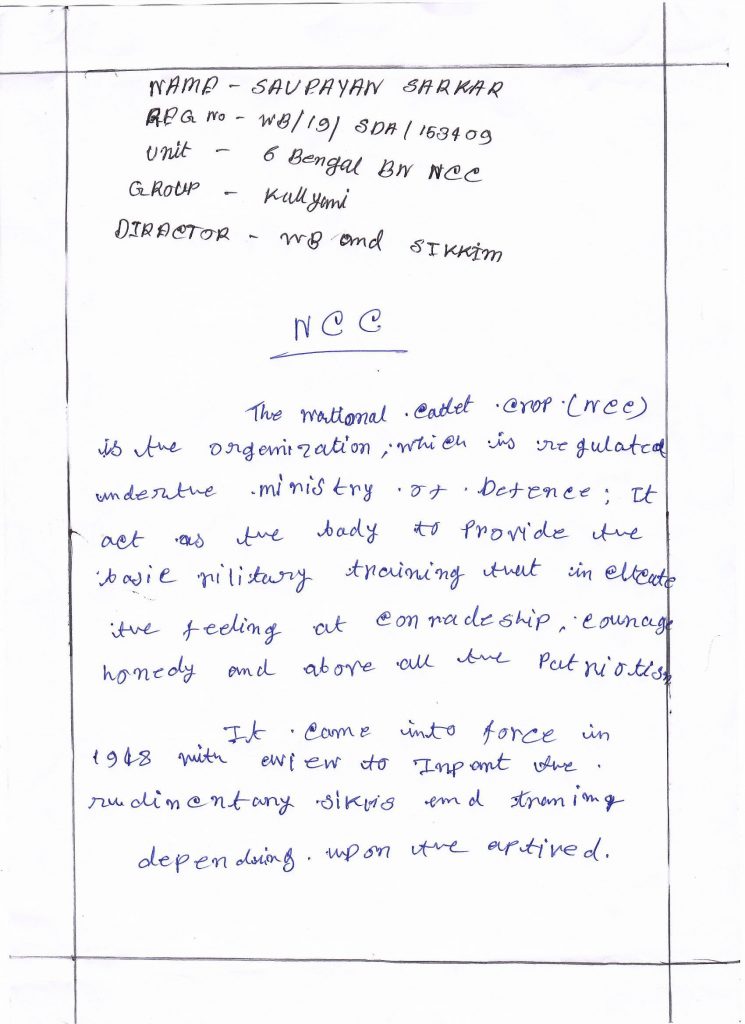 NAME - SAUPAYAN SARKAR
REG NO - WB/19/SDA/153409
Unit - 6 Bengal BN NCC
GROUP - Kallyani
DIRACTOR - WB and SIKKIM
NCC
The national cadet crop (NCC)
is the organization, which is regulated
under the ministry of Defence; It
act as the body to Provide the
basic military training that incltcate
the feeling at comradeship, courage
honedy and above all the Patriotism
It came into force in
1948 with eview to Inpant the
rudimentary sikus and traning
depending upon the aptired.